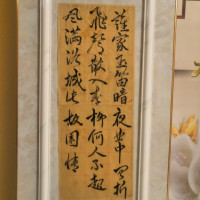 誰家玉笛暗夜曲中闻折
飛聲散入春柳何人不起
風滿洛城此故園情